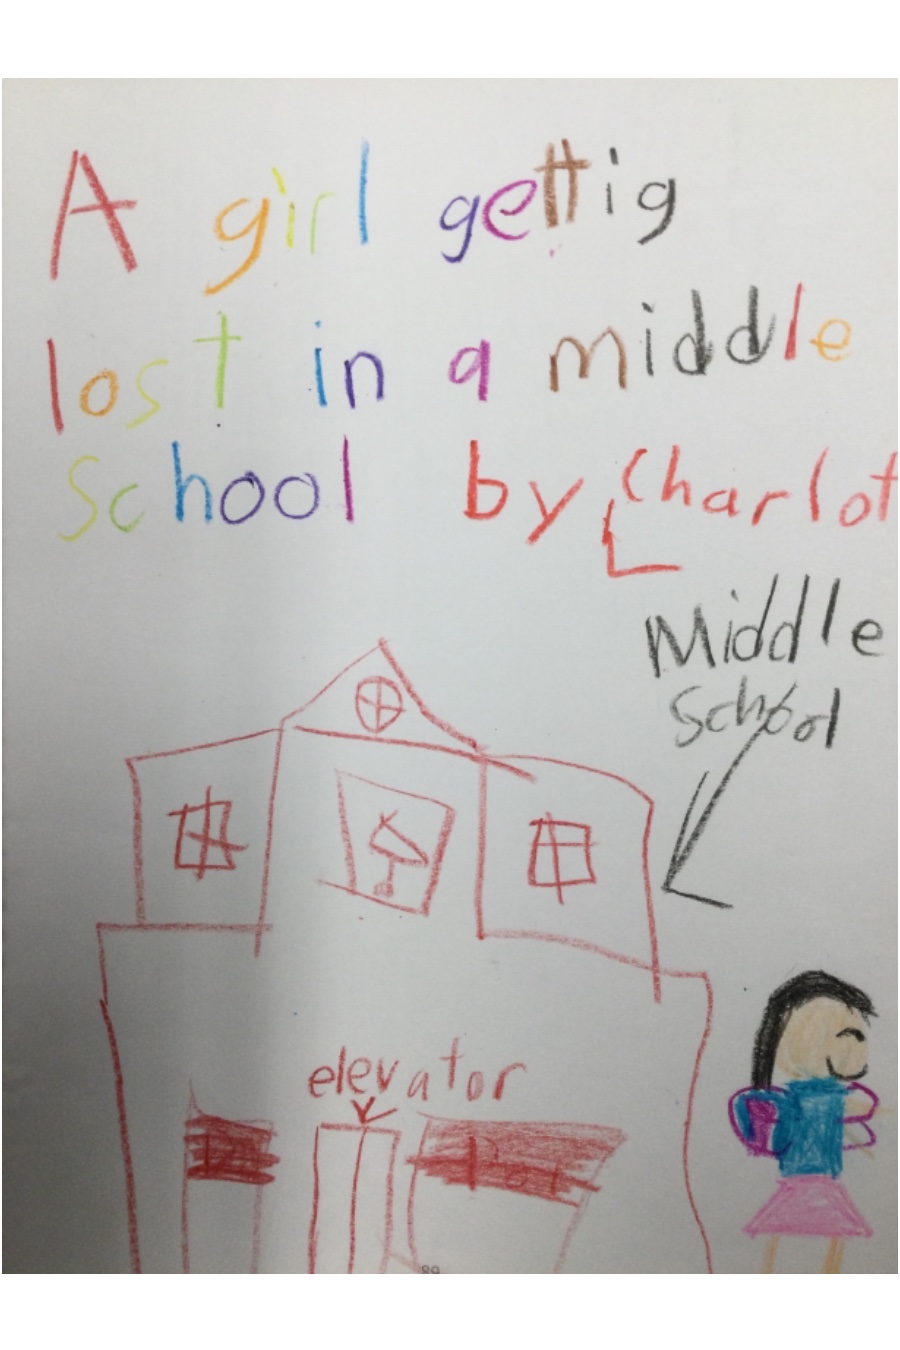 A girl gettig
lost in a middle
School by Charlot
Middle
School
elevator
89